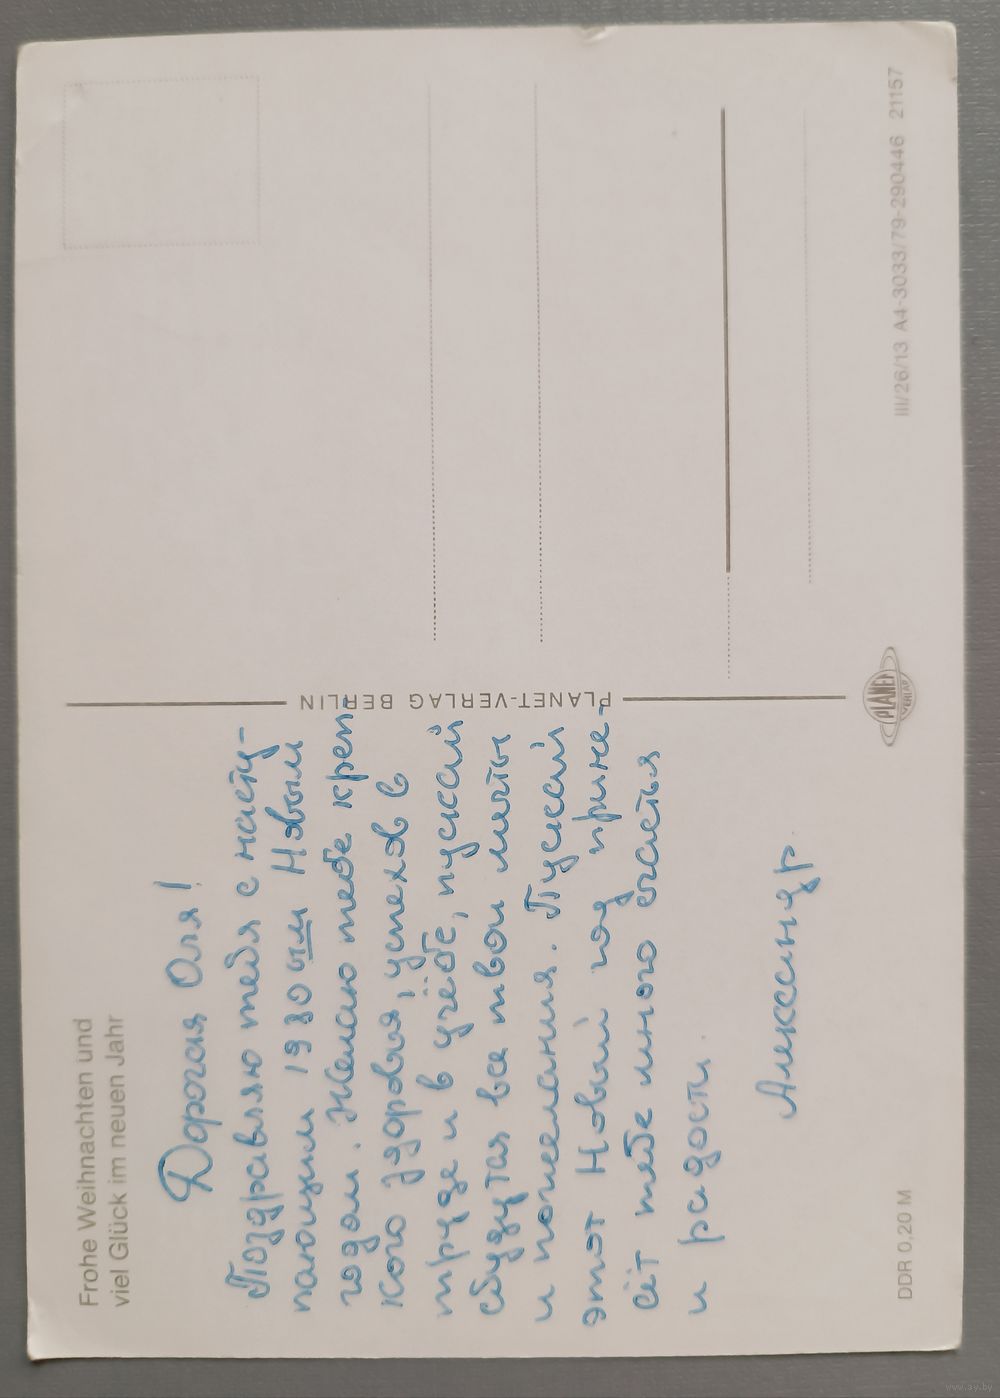 Frohe Weihnachten und
viel Glück im neuen Jahr
Дорогая Оля!
Поздравляю тебя с насту-
пающим 1980ым Новым
годом. Желаю тебе креп-
кого здоровья, успехов в
труде и в учёбе, пускай
сбудутся все твои мечты
и пожелания. Пускай
этот Новый год прине-
сёт тебе много счастья
и радости.
Александр.
DDR 0,20 M
PLANET-VERLAG BERLIN
PLANET
VERLAG
III/26/13 A4-3033/79-290446 21157
www.ay.by